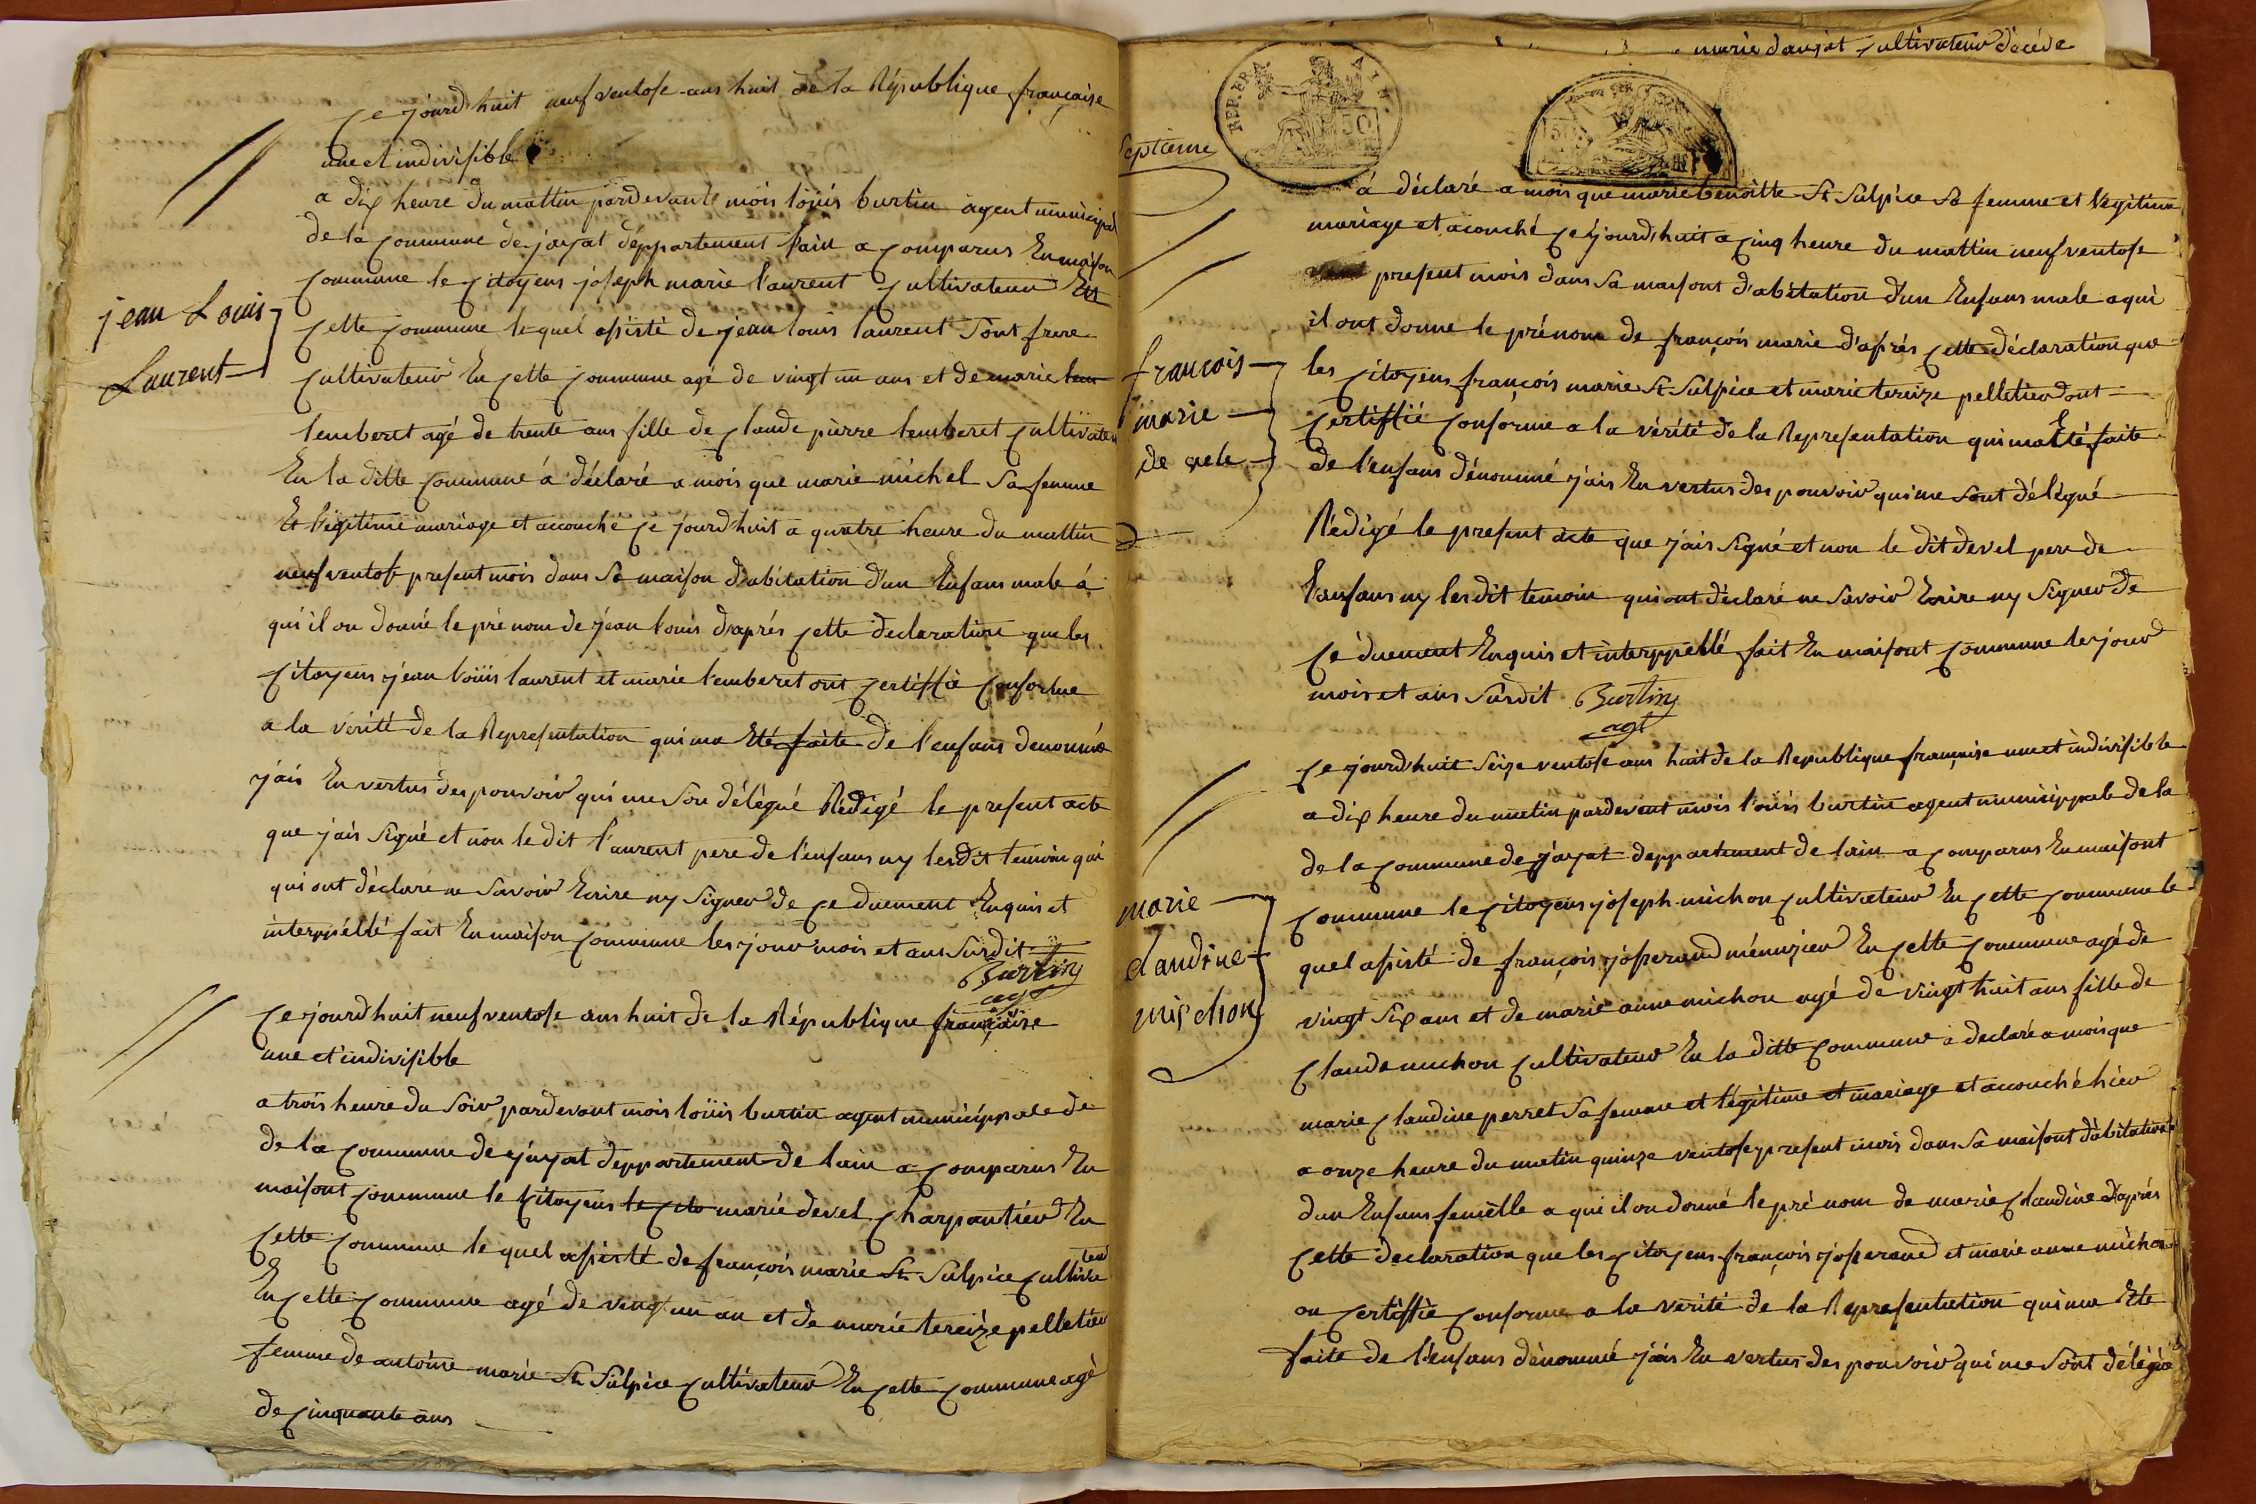 Ce jourd'huit neuf ventose ans huit de la République française
une et indivisible
a dix heure du mattin pardevant mois loüis burtin agent municipal
de la Commune de jayat déppartement l'ain a Comparus En maison
Commune le Citoyens joseph marie laurent Cultivateur En
jean Louis
Laurent
Cette Commune le quel asisté de jean louis laurent sont frere
Cultivateur En Cette Commune agé de vingt un ans et de marie lem
lemberet agé de trente ans fille de Claude pierre lemberet Cultivateu
En la ditte Commune á déclaré a mois que marie michel sa femme
Et légitime mariage et accouché Ce jourd'huit a quatre heure du mattin
neuf ventose present mois dans sa maison d'abitation d'un Enfans male á
qui il on donné le pré nom de jean louis d'aprés Cette declaration que les
Citoyens jean loüis laurent et marie lemberet ont Certiffié Conforme
a la vérité de la Representation qui ma Eté faite de l'enfans denommé
jais En vertus des pouvoir qui me son délégué Redigé le present acte
que jais signé et non le dit laurent pere de l'enfans ny lesdit temoin qui
qui ont déclaré ne savoir Ecrire ny signer de Ce duement Enquis et
interppéllé fait En maison Commune les jour mois et ans susdit
Burtin
agt
Ce jourd'huit neuf ventose ans huit de la République française
une et indivisible
a trois heure du soir pardevant mois loüis burtin agent municippale de
de la Commune de jayat deppartement de lain a Comparus En
maisont Commune le Citoyens le Cito marie devel Charpantier En
Cette Commune le quel asisté de françois marie St Sulpice Cultiva
teur
En Cette Commune agé de vingt un an et de marie tereize pelletier
femme de antoine marie St Sulpice Cultivateur En Cette Commune agé
de Cinquante ans
marie danjat Cultivateur décéde
REP. FRA
50
50
Septieme
á déclaré a mois que marie benoitte St Sulpice sa femme et légitime
mariage et acouché Ce jourd'huit a Cinq heure du mattin neuf ventose
present mois dans sa maisont d'abitation d'un Enfans male a qui
il ont donne le prénom de françois marie d'aprés Cette déclaration que
françois
marie
de vele
les Citoyens françois marie St Sulpice et marie tereize pelletier ont
Certiffié Conforme a la vérité de la Representation qui ma Eté faite
de l'enfans dénommé jais En vertus des pouvoir qui me sont délégué
Rédigé le present acte que jais signé et non le dit devel pere de
l'anfans ny les dit temoin qui ont déclaré ne savoir Ecrire ny signer de
Cé duement Enquis et interppéllé fait En maisont Commune les jour
mois et ans susdit Burtin
agt
Ce jourd'huit seize ventose ans huit de la Republique française une et indivisible
a dix heure du matin pardevent mois l'oüis burtin agent municippale de la
de la Commune de jayat deppartement de lain a Comparus En maisont
marie
Claudine
mischon
Commune le Citoyens joseph michon Cultivateur En Cette Commune le
quel asisté de françois josserand ménuzier En Cette Commune agé de
vingt six ans et de marie anne michon agé de vingt huit ans fille de
Claude michon Cultivateur En la ditte Commune a declaré a mois que
marie Claudine perret sa femme et légitime et mariage et accouché hier
a onze heure du matin quinze ventose present mois dans sa maisont d'abitation
d'un Enfans femèlle a qui il on donné le pré nom de marie Claudine d'aprés
Cette declaration que les Citoyens françois josserand et marie anne michon
on Certiffié Conforme a la verité de la Representation qui ma Eté
faite de l'enfans dénommé jais En vertus des pouvoir qui me sont délégué